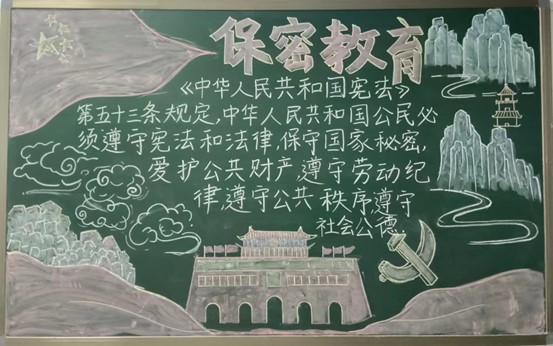 保密教育
《中华人民共和国宪法》
第五十三条规定,中华人民共和国公民必
须遵守宪法和法律,保守国家秘密,
爱护公共财产遵守劳动纪
律遵守公共秩序遵守
社会公德.